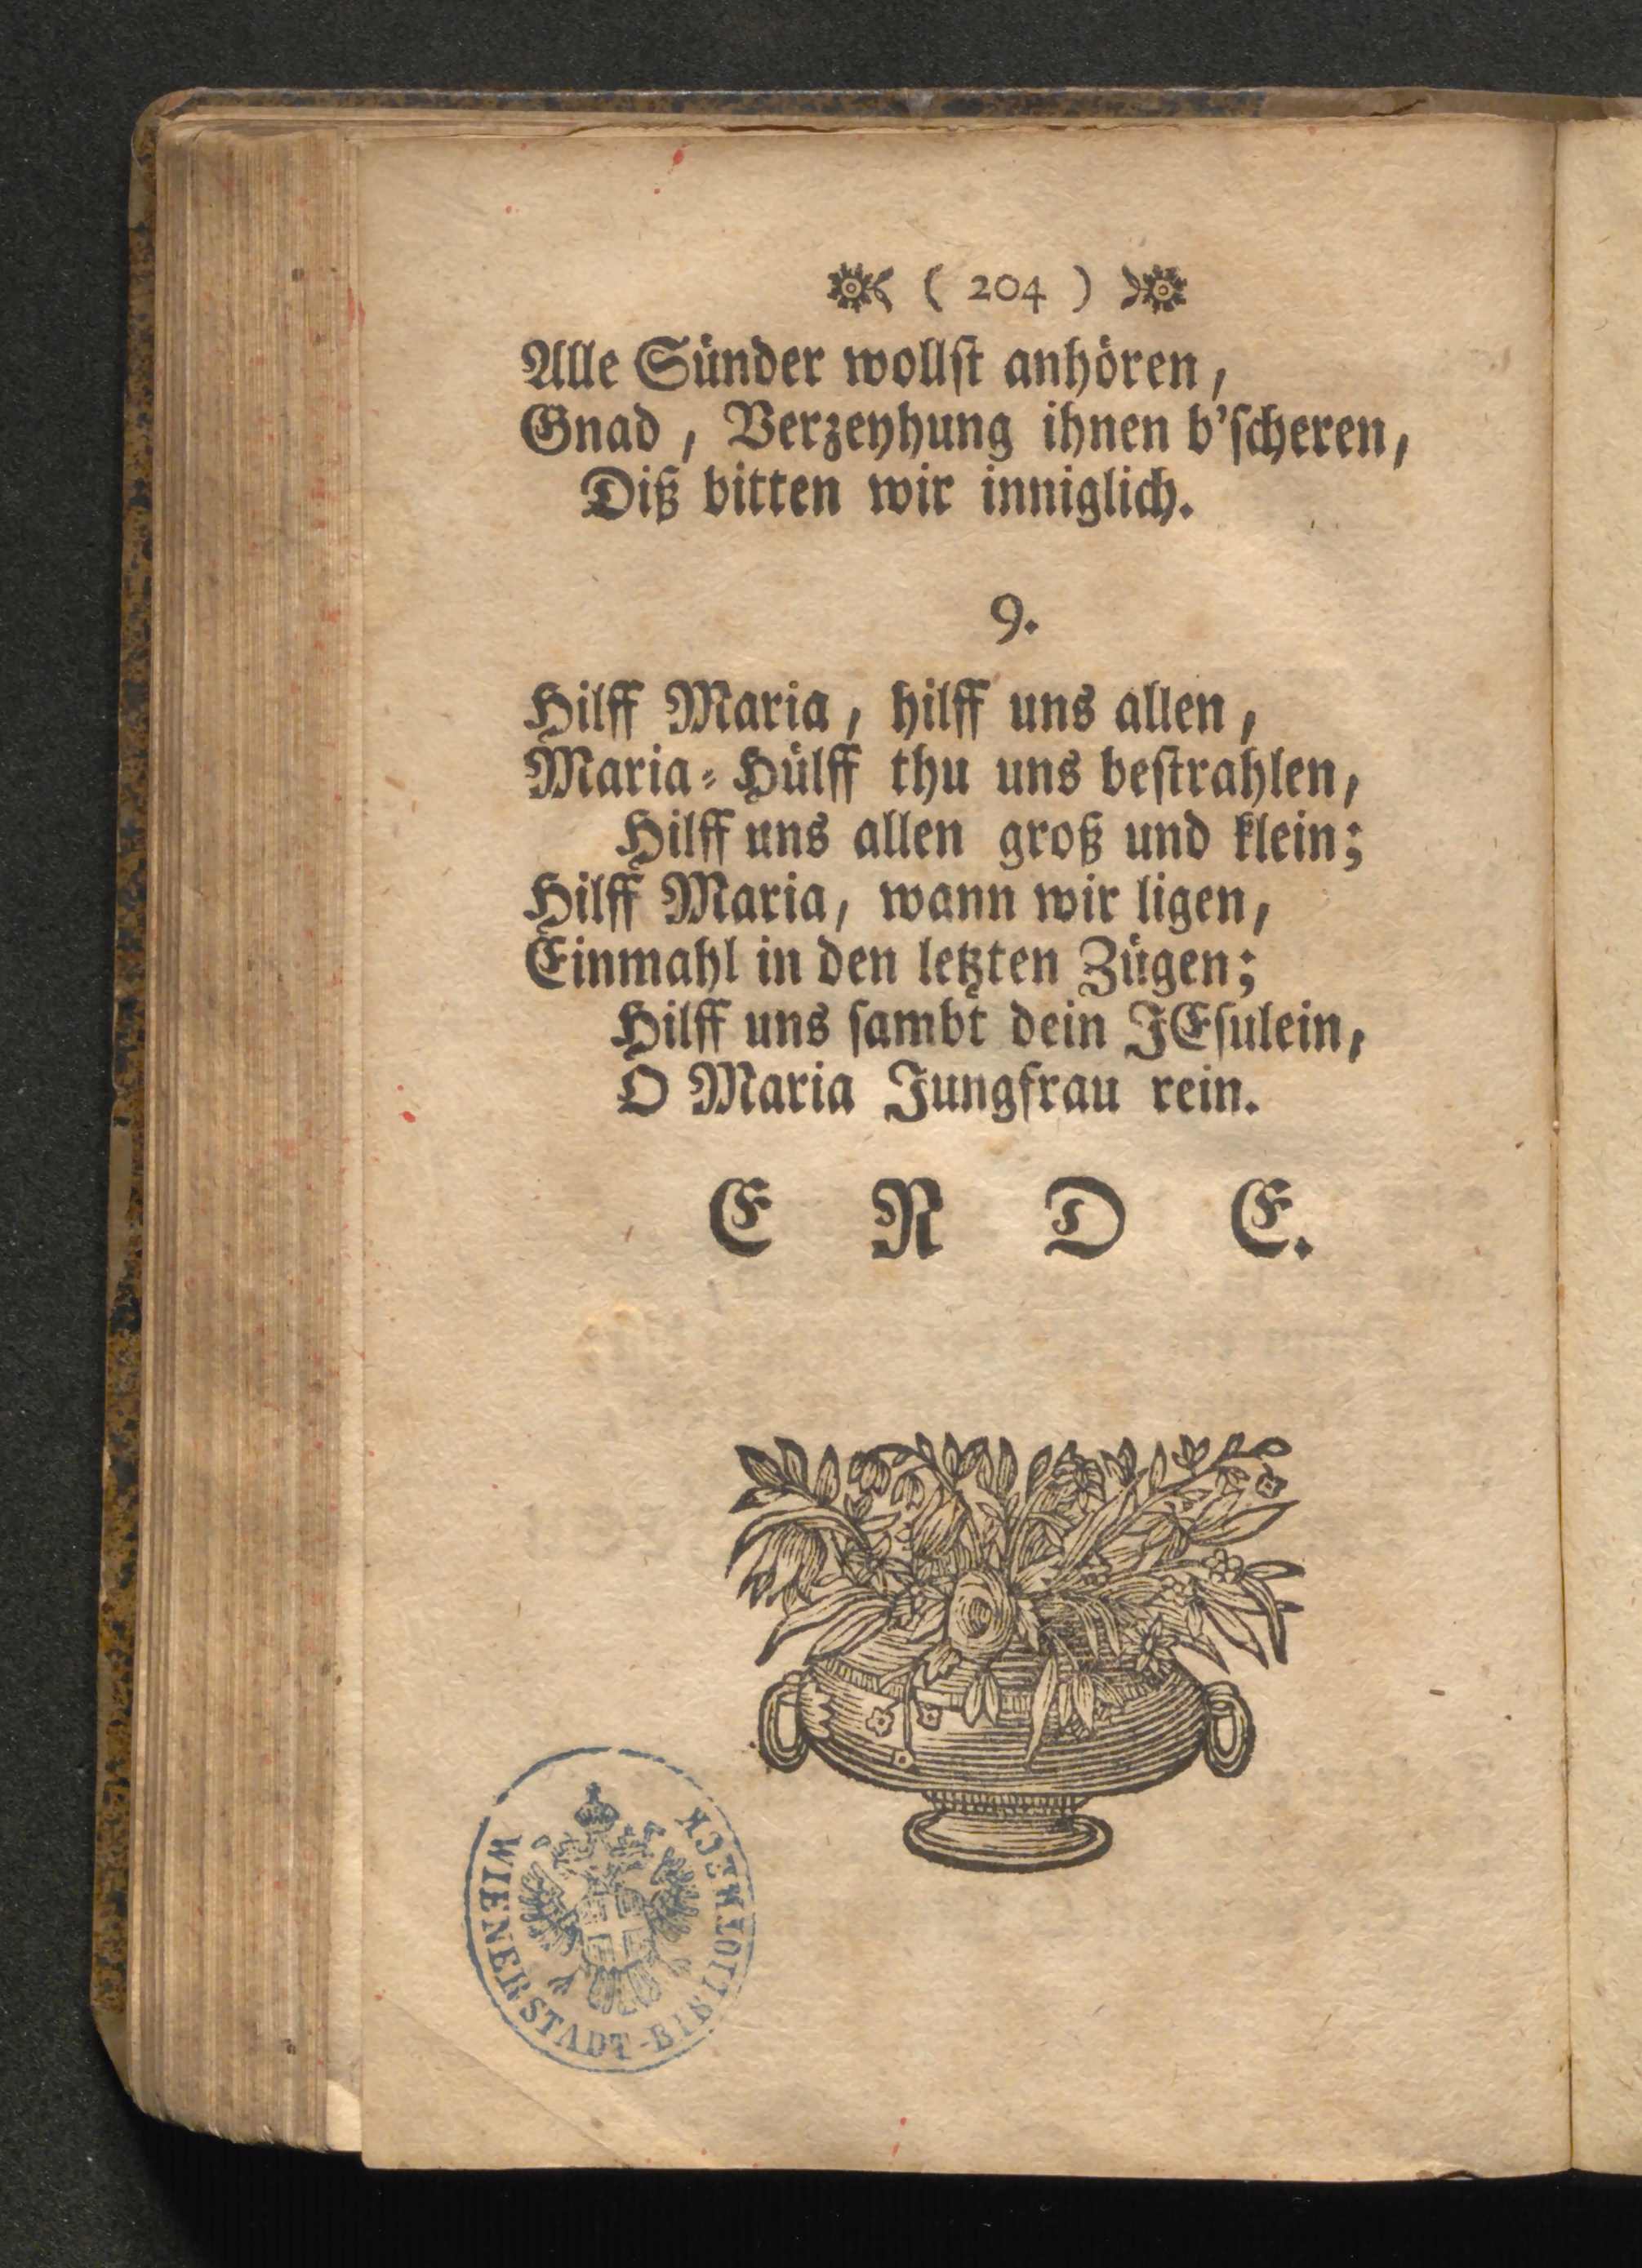 ( 204 )
Alle Sünder wollſt anhören,
Gnad, Verzeyhung ihnen b'ſcheren,
Diß bitten wir inniglich.
9.
Hilff Maria, hilff uns allen,
Maria-Hülff thu uns beſtrahlen,
Hilff uns allen groß und klein;
Hilff Maria, wann wir ligen,
Einmahl in den letzten Zügen;
Hilff uns ſambt dein JEſulein,
O Maria Jungfrau rein.
E N D E.
WIENER STADT-BIBLIOTHECK